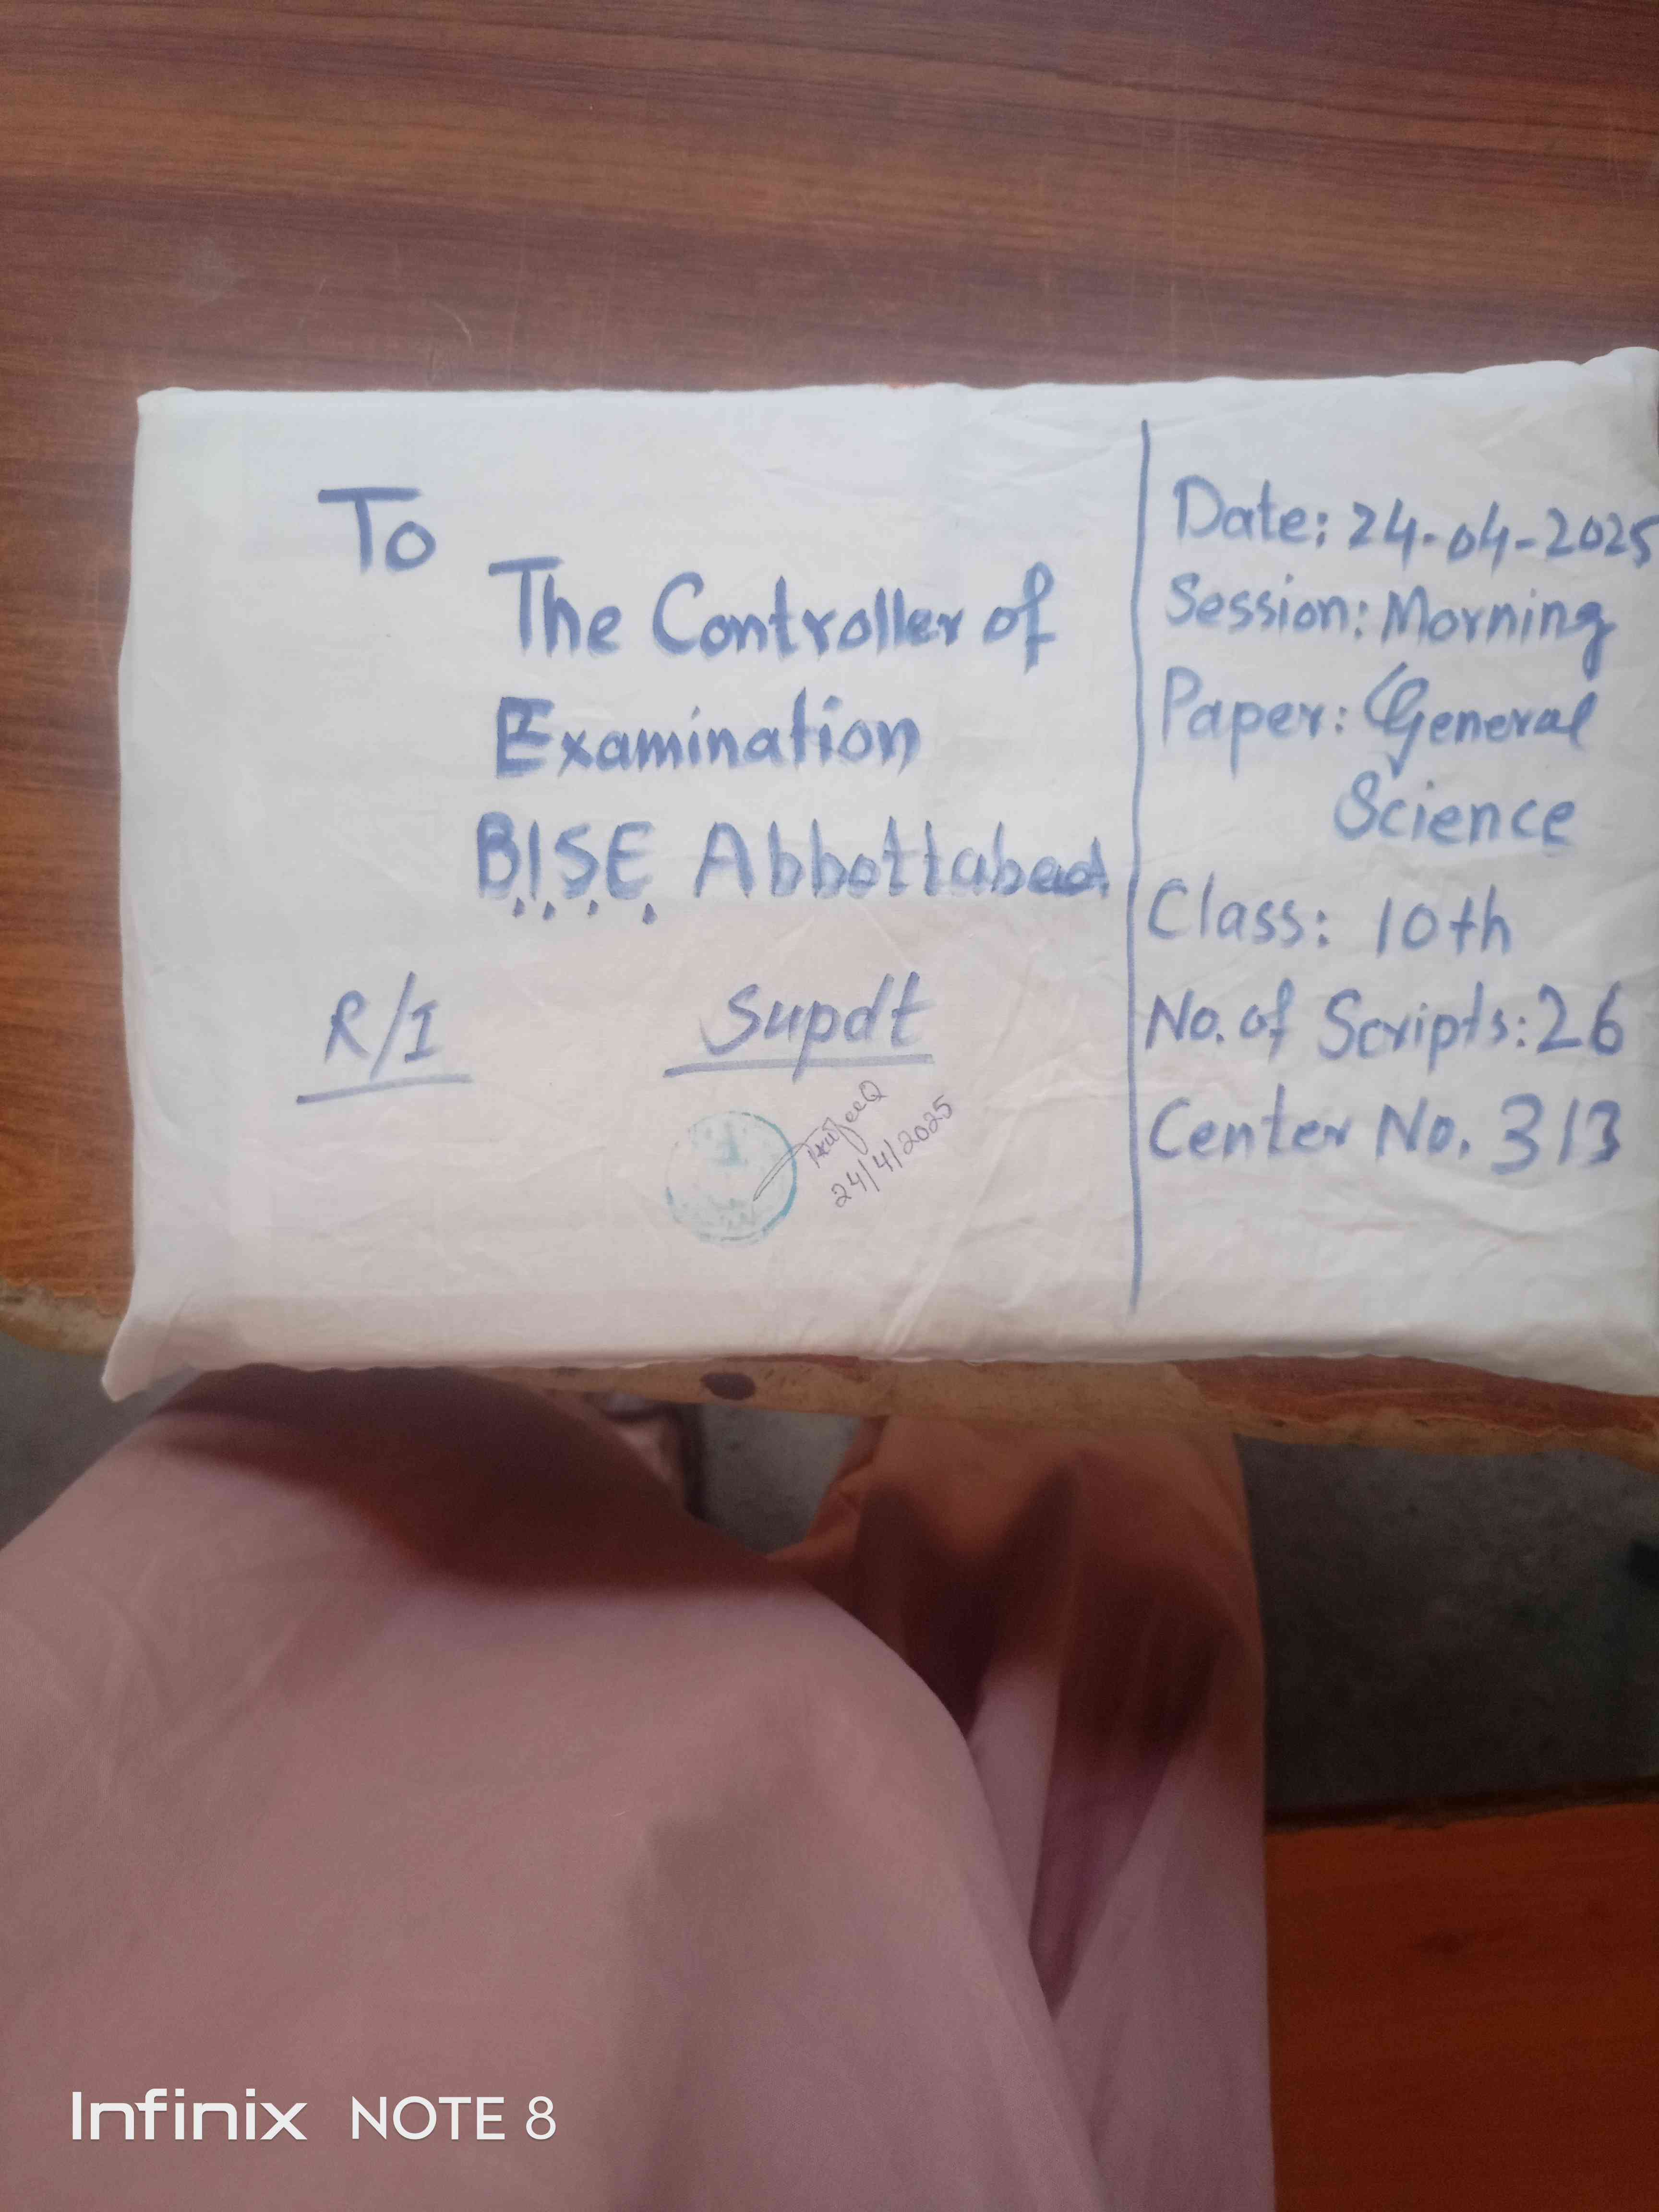 To
The Controller of
Examination
B.I.S.E. Abbottabad.
R/I
Supdt
24/4/2025
Date: 24-04-2025
Session: Morning
Paper: General
Science
Class: 10th
No. of Scripts: 26
Center No. 313
Infinix NOTE 8